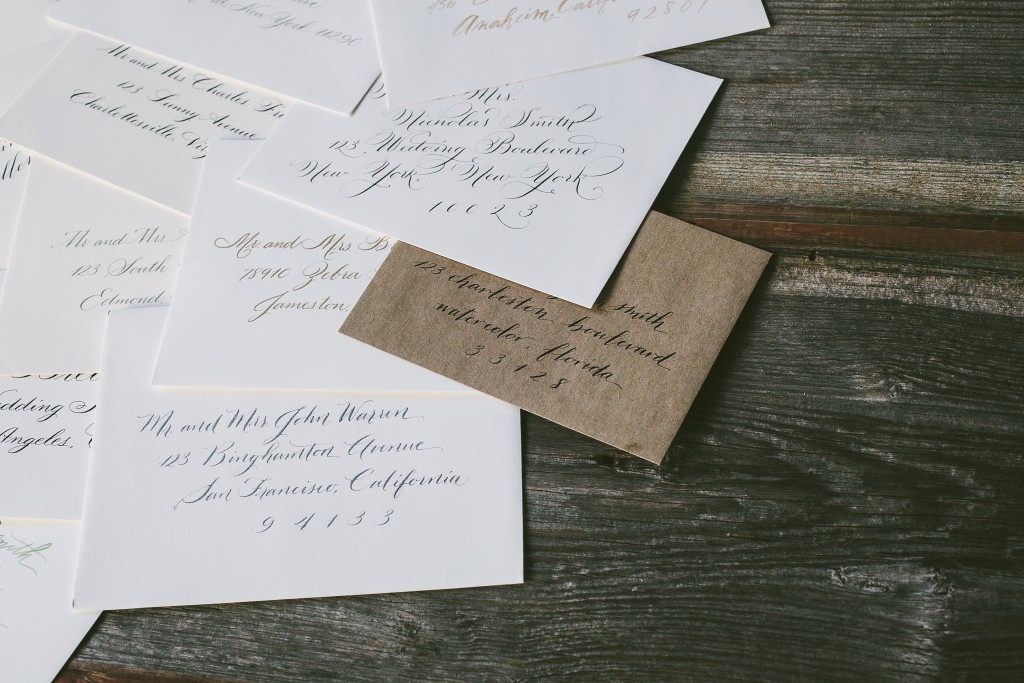 New York 11290
Anaheim,
92801
Mr and Mrs Charles
123 Sunny Avenue
Charlottesville,
Mrs.
Nicholas Smith
123 Wedding Boulevard
New York, New York
10023
Mr and Mrs
123 South
Edmond,
Mr and Mrs B
78910 Zebra
Jameston,
smith
123 charleston boulevard
watercolor, florida
33128
Mr and Mrs John Warren
123 Binghamton Avenue
San Francisco, California
94133
Angeles,